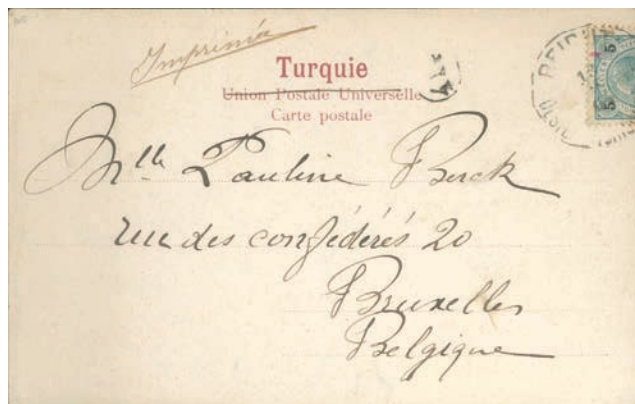 Imprimée
Turquie
Union Postale Universelle
Carte postale
Mlle Pauline Berck
rue des confédérés 20
Bruxelles
Belgique
5 5